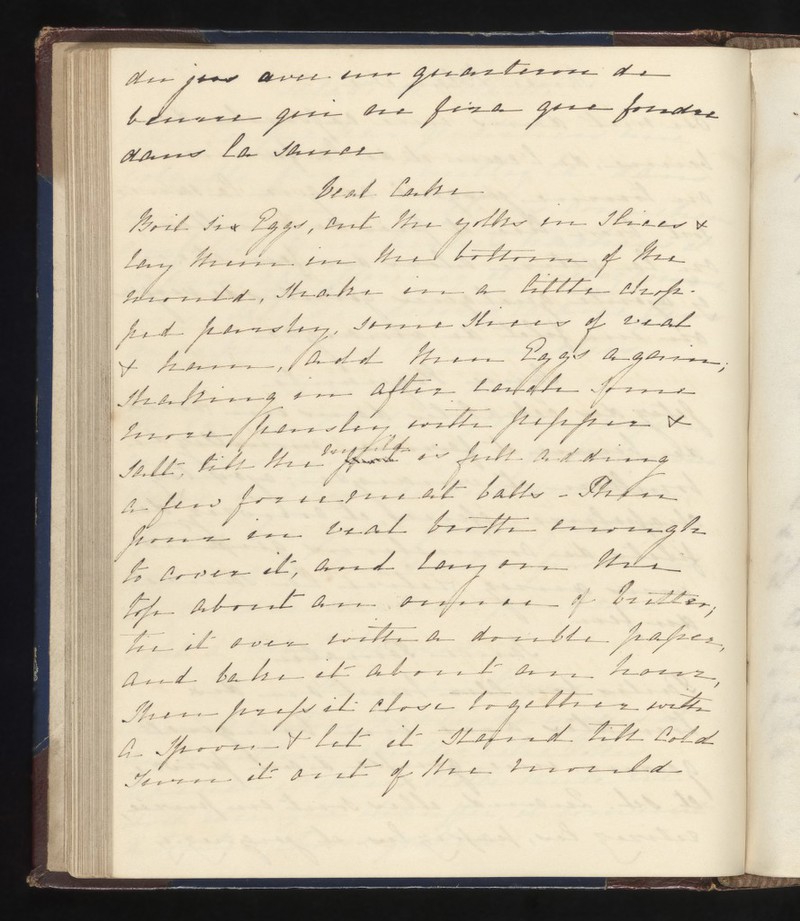 du jus avec un quarteron de
beurre qui ne fera que fondre
dans la sauce
Veal Cake
Boil six Eggs, cut the yolks in slices &
lay them in the bottom of the
mould, shake in a little chop-
ped parsley, some slices of veal
& ham, add then Eggs again;
shaking in after each some
more parsley with pepper &
salt, till the mould is full adding
a few forcemeat balls - Then
pour in veal broth enough
to cover it, and lay on the
top about an ounce of butter,
tie it over with a double paper,
and bake it about an hour,
Then press it close together with
a spoon & let it stand till cold
Turn it out of the mould